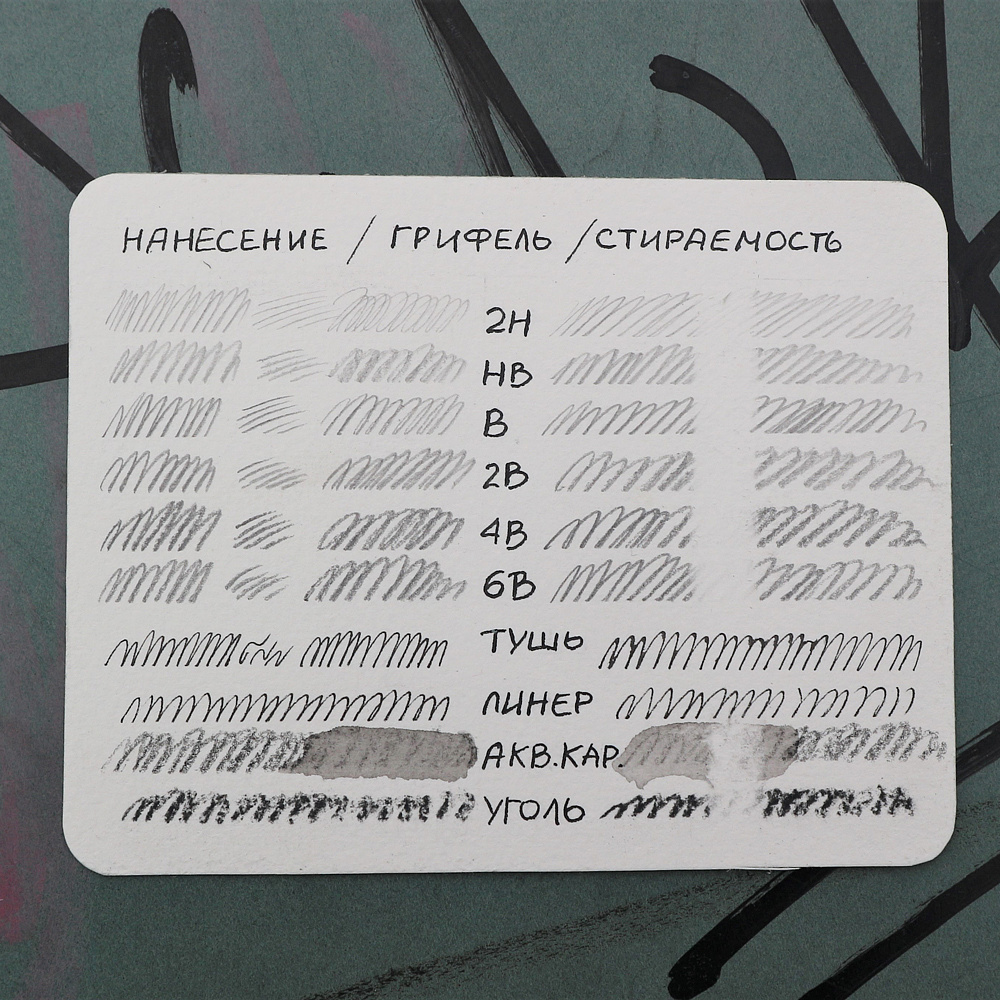 НАНЕСЕНИЕ / ГРИФЕЛЬ / СТИРАЕМОСТЬ
2H
HB
B
2B
4B
6B
ТУШЬ
ЛИНЕР
АКВ.КАР.
УГОЛЬ